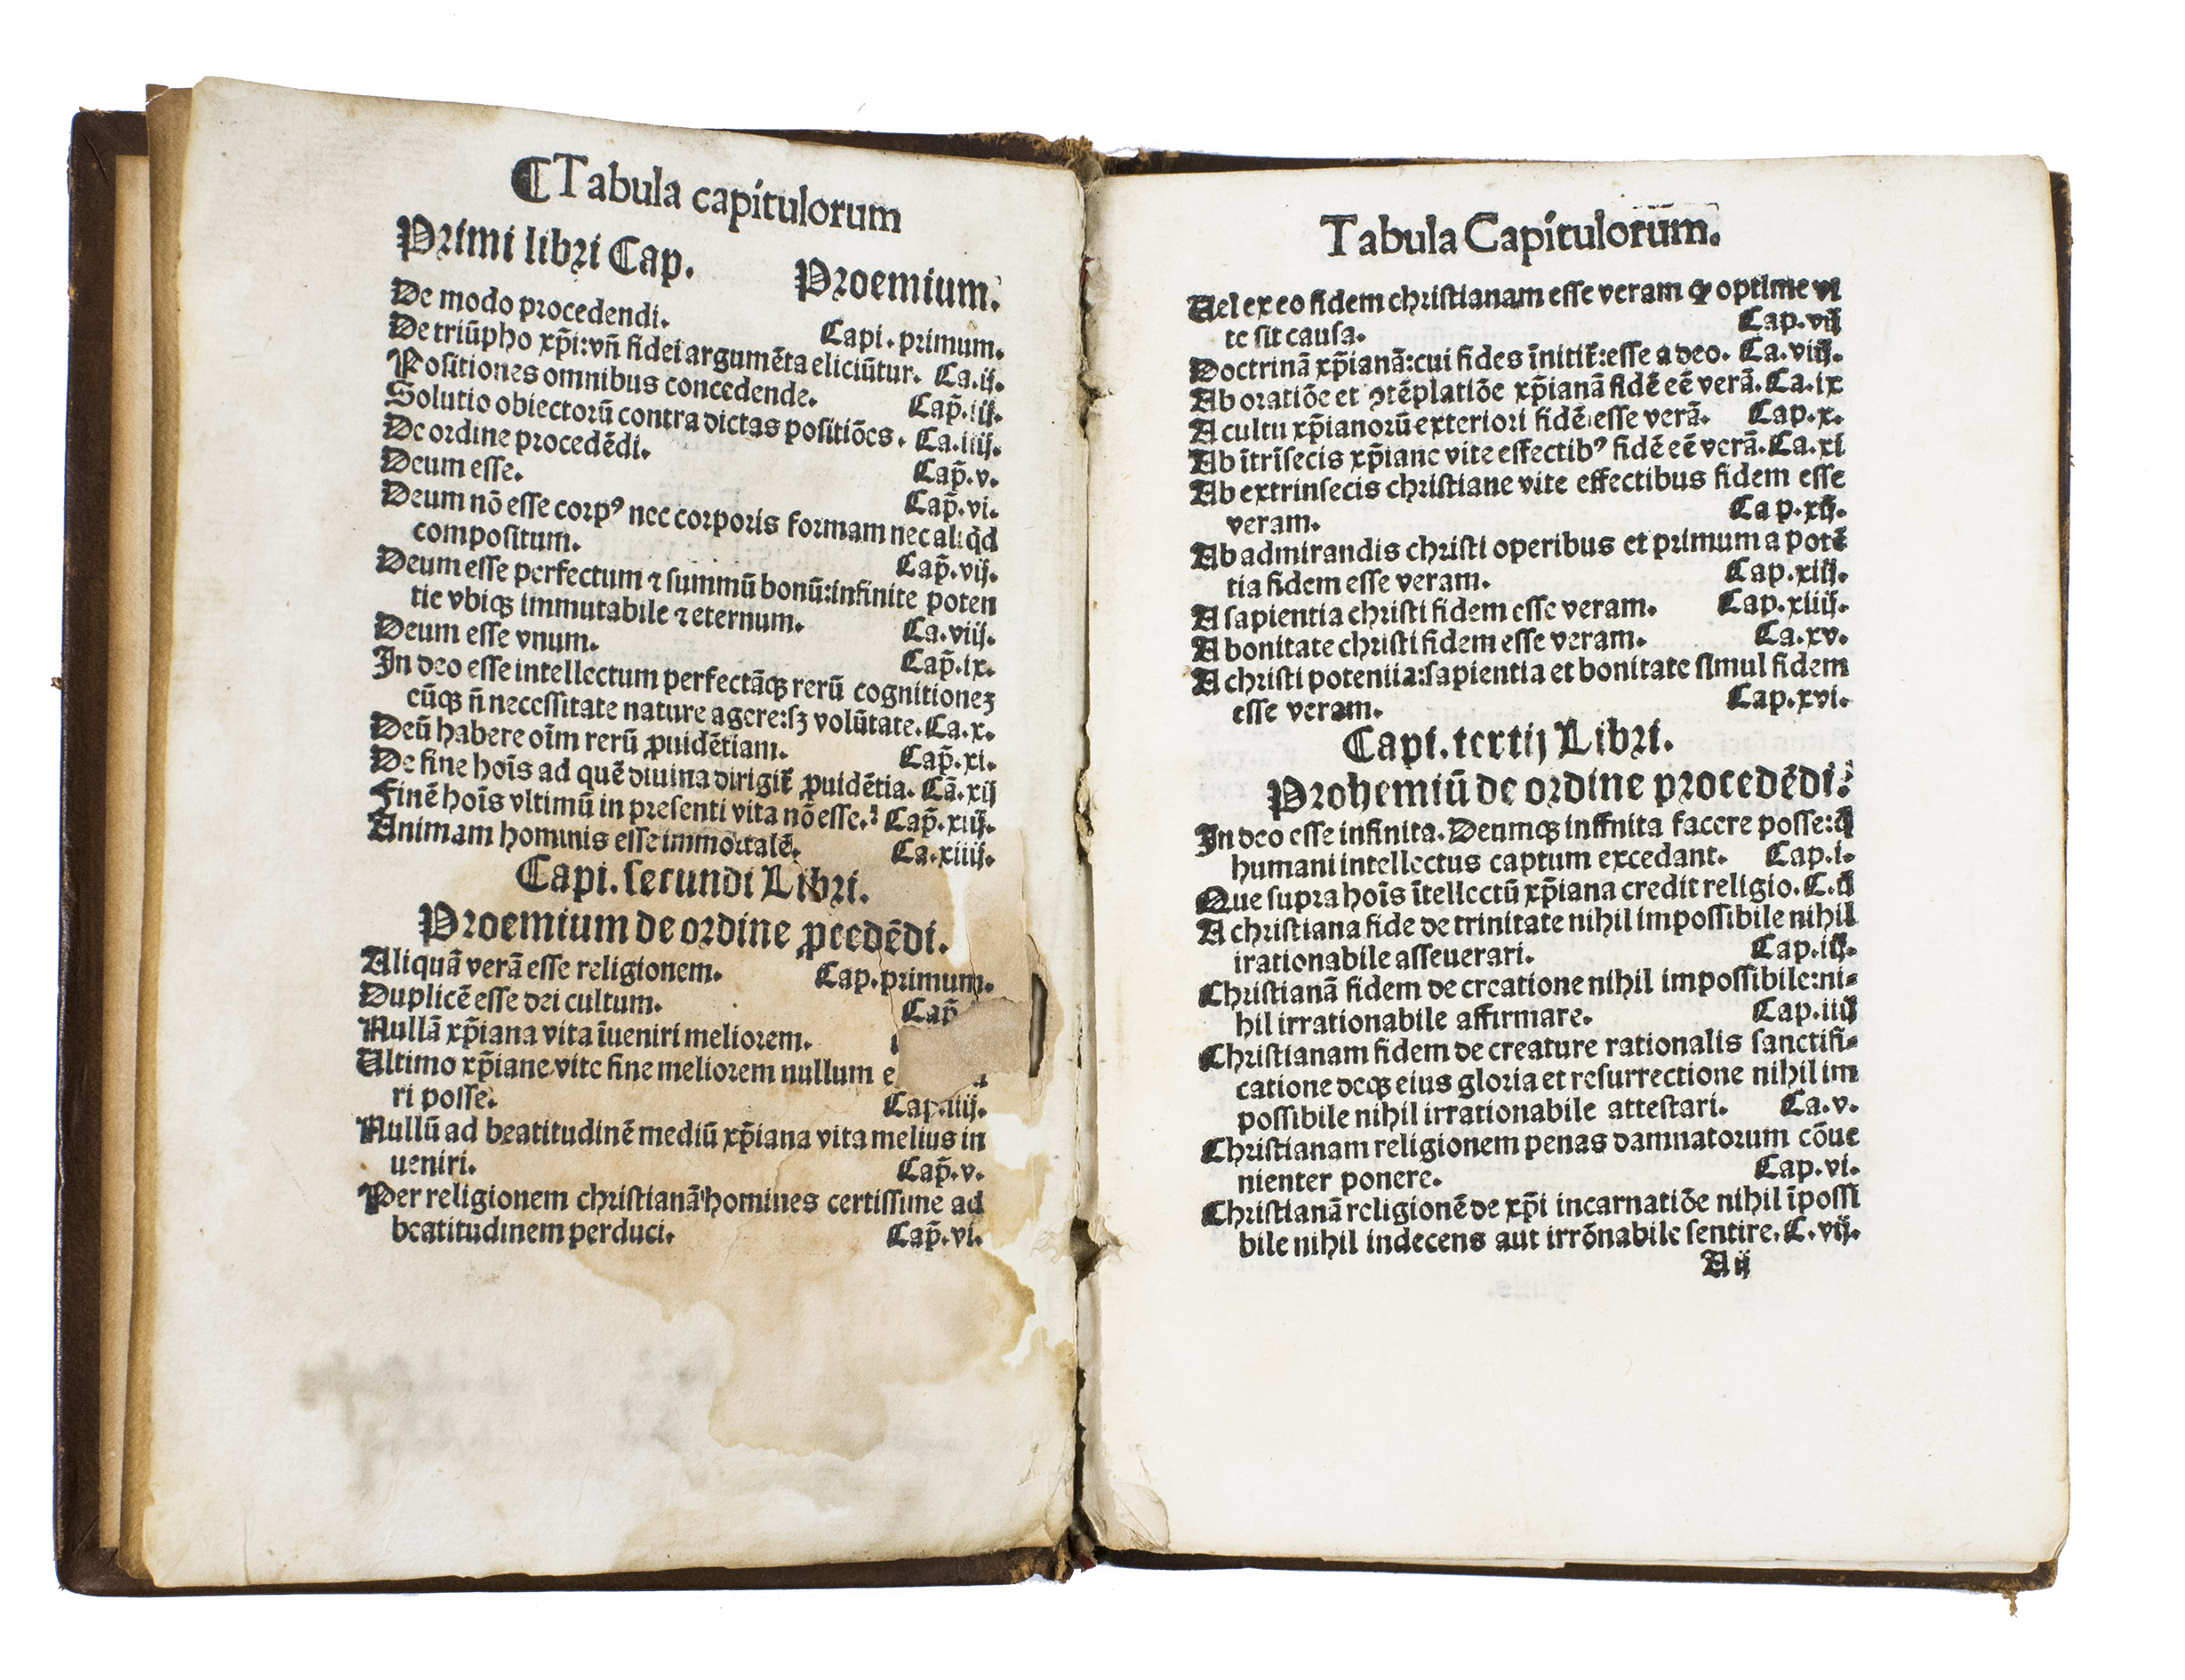 ¶Tabula capitulorum
Primi libri Cap. Proemium.
De modo procedendi. Capi. primum.
De triũpho xp̃i:vñ fidei argumẽta eliciũtur. Ca.ij.
Positiones omnibus concedende. Cap̃.iij.
Solutio obiectorũ contra dictas positiões. Ca.iiij.
De ordine procedẽdi. Cap̃.v.
Deum esse. Cap̃.vi.
Deum nõ esse corpꝰ nec corporis formam nec aliq̇d
compositum. Cap̃.vij.
Deum esse perfectum ⁊ summũ bonũ:infinite poten
tie vbiqꝫ immutabile ⁊ eternum. Ca.viij.
Deum esse vnum. Cap̃.ix.
In deo esse intellectum perfectãqꝫ rerũ cognitioneꝫ
eũqꝫ ñ necessitate nature agere:sꝫ volũtate. Ca.x.
Deũ habere oĩm rerũ ꝓuidẽtiam. Cap̃.xi.
De fine hoĩs ad quẽ diuina dirigit̃ ꝓuidẽtia. Cã.xij
Finẽ hoĩs vltimũ in presenti vita nõ esse. Cap̃.xiij.
Animam hominis esse immortalẽ. Ca.xiiij.
Capi. secundi Libri.
Proemium de ordine ꝓcedẽdi.
Aliquã verã esse religionem. Cap.primum.
Duplicẽ esse dei cultum. Cap̃
Nullã xp̃iana vita ĩueniri meliorem.
Ultimo xp̃iane vite fine meliorem nullum e
ri posse. Cap.iiij.
Nullũ ad beatitudinẽ mediũ xp̃iana vita melius in
ueniri. Cap̃.v.
Per religionem christianã homines certissime ad
beatitudinem perduci. Cap̃.vi.
Tabula Capitulorum.
Uel ex eo fidem christianam esse veram ꝙ optime vi
te sit causa. Cap.vij
Doctrinã xp̃ianã:cui fides ĩnitit̃:esse a deo. Ca.viij.
Ab oratiõe et ꝯtẽplatiõe xp̃ianã fidẽ eẽ verã. Ca.ix
A cultu xp̃ianorũ exteriori fidẽ esse verã. Cap.x.
Ab ĩtrĩsecis xp̃iane vite effectibꝰ fidẽ eẽ verã. Ca.xi
Ab extrinsecis christiane vite effectibus fidem esse
veram. Cap.xij.
Ab admirandis christi operibus et primum a potẽ
tia fidem esse veram. Cap.xiij.
A sapientia christi fidem esse veram. Cap.xiiij.
A bonitate christi fidem esse veram. Ca.xv.
A christi poteniia:sapientia et bonitate simul fidem
esse veram. Cap.xvi.
Capi.tertij Libri.
Prohemiũ de ordine procedẽdi.
In deo esse infinita. Deumqꝫ infinita facere posse:q̃
humani intellectus captum excedant. Cap.i.
Que supra hoĩs ĩtellectũ xp̃iana credit religio. C.ij
A christiana fide de trinitate nihil impossibile nihil
irationabile asseuerari. Cap.iij.
Christianã fidem de creatione nihil impossibile:ni-
hil irrationabile affirmare. Cap.iiij
Christianam fidem de creature rationalis sanctifi-
catione deqꝫ eius gloria et resurrectione nihil im
possibile nihil irrationabile attestari. Ca.v.
Christianam religionem penas damnatorum cõue
nienter ponere. Cap.vi.
Christianã religionẽ de xp̃i incarnatiõe nihil ĩpossi
bile nihil indecens aut irrõnabile sentire. C.vij.
A ij